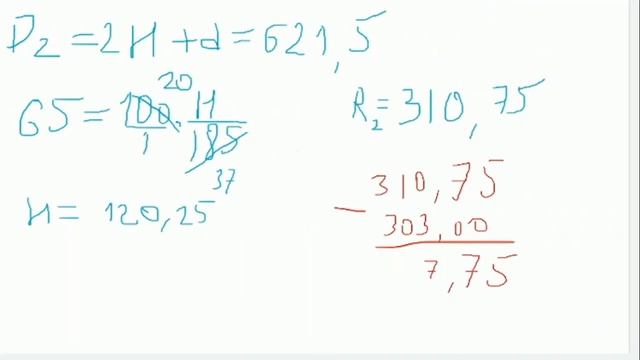 D₂ = 2H + d = 621,5
65 = 100/1 · H/185
20
37
H = 120,25
R₂ = 310,75
310,75
− 303,00
7,75